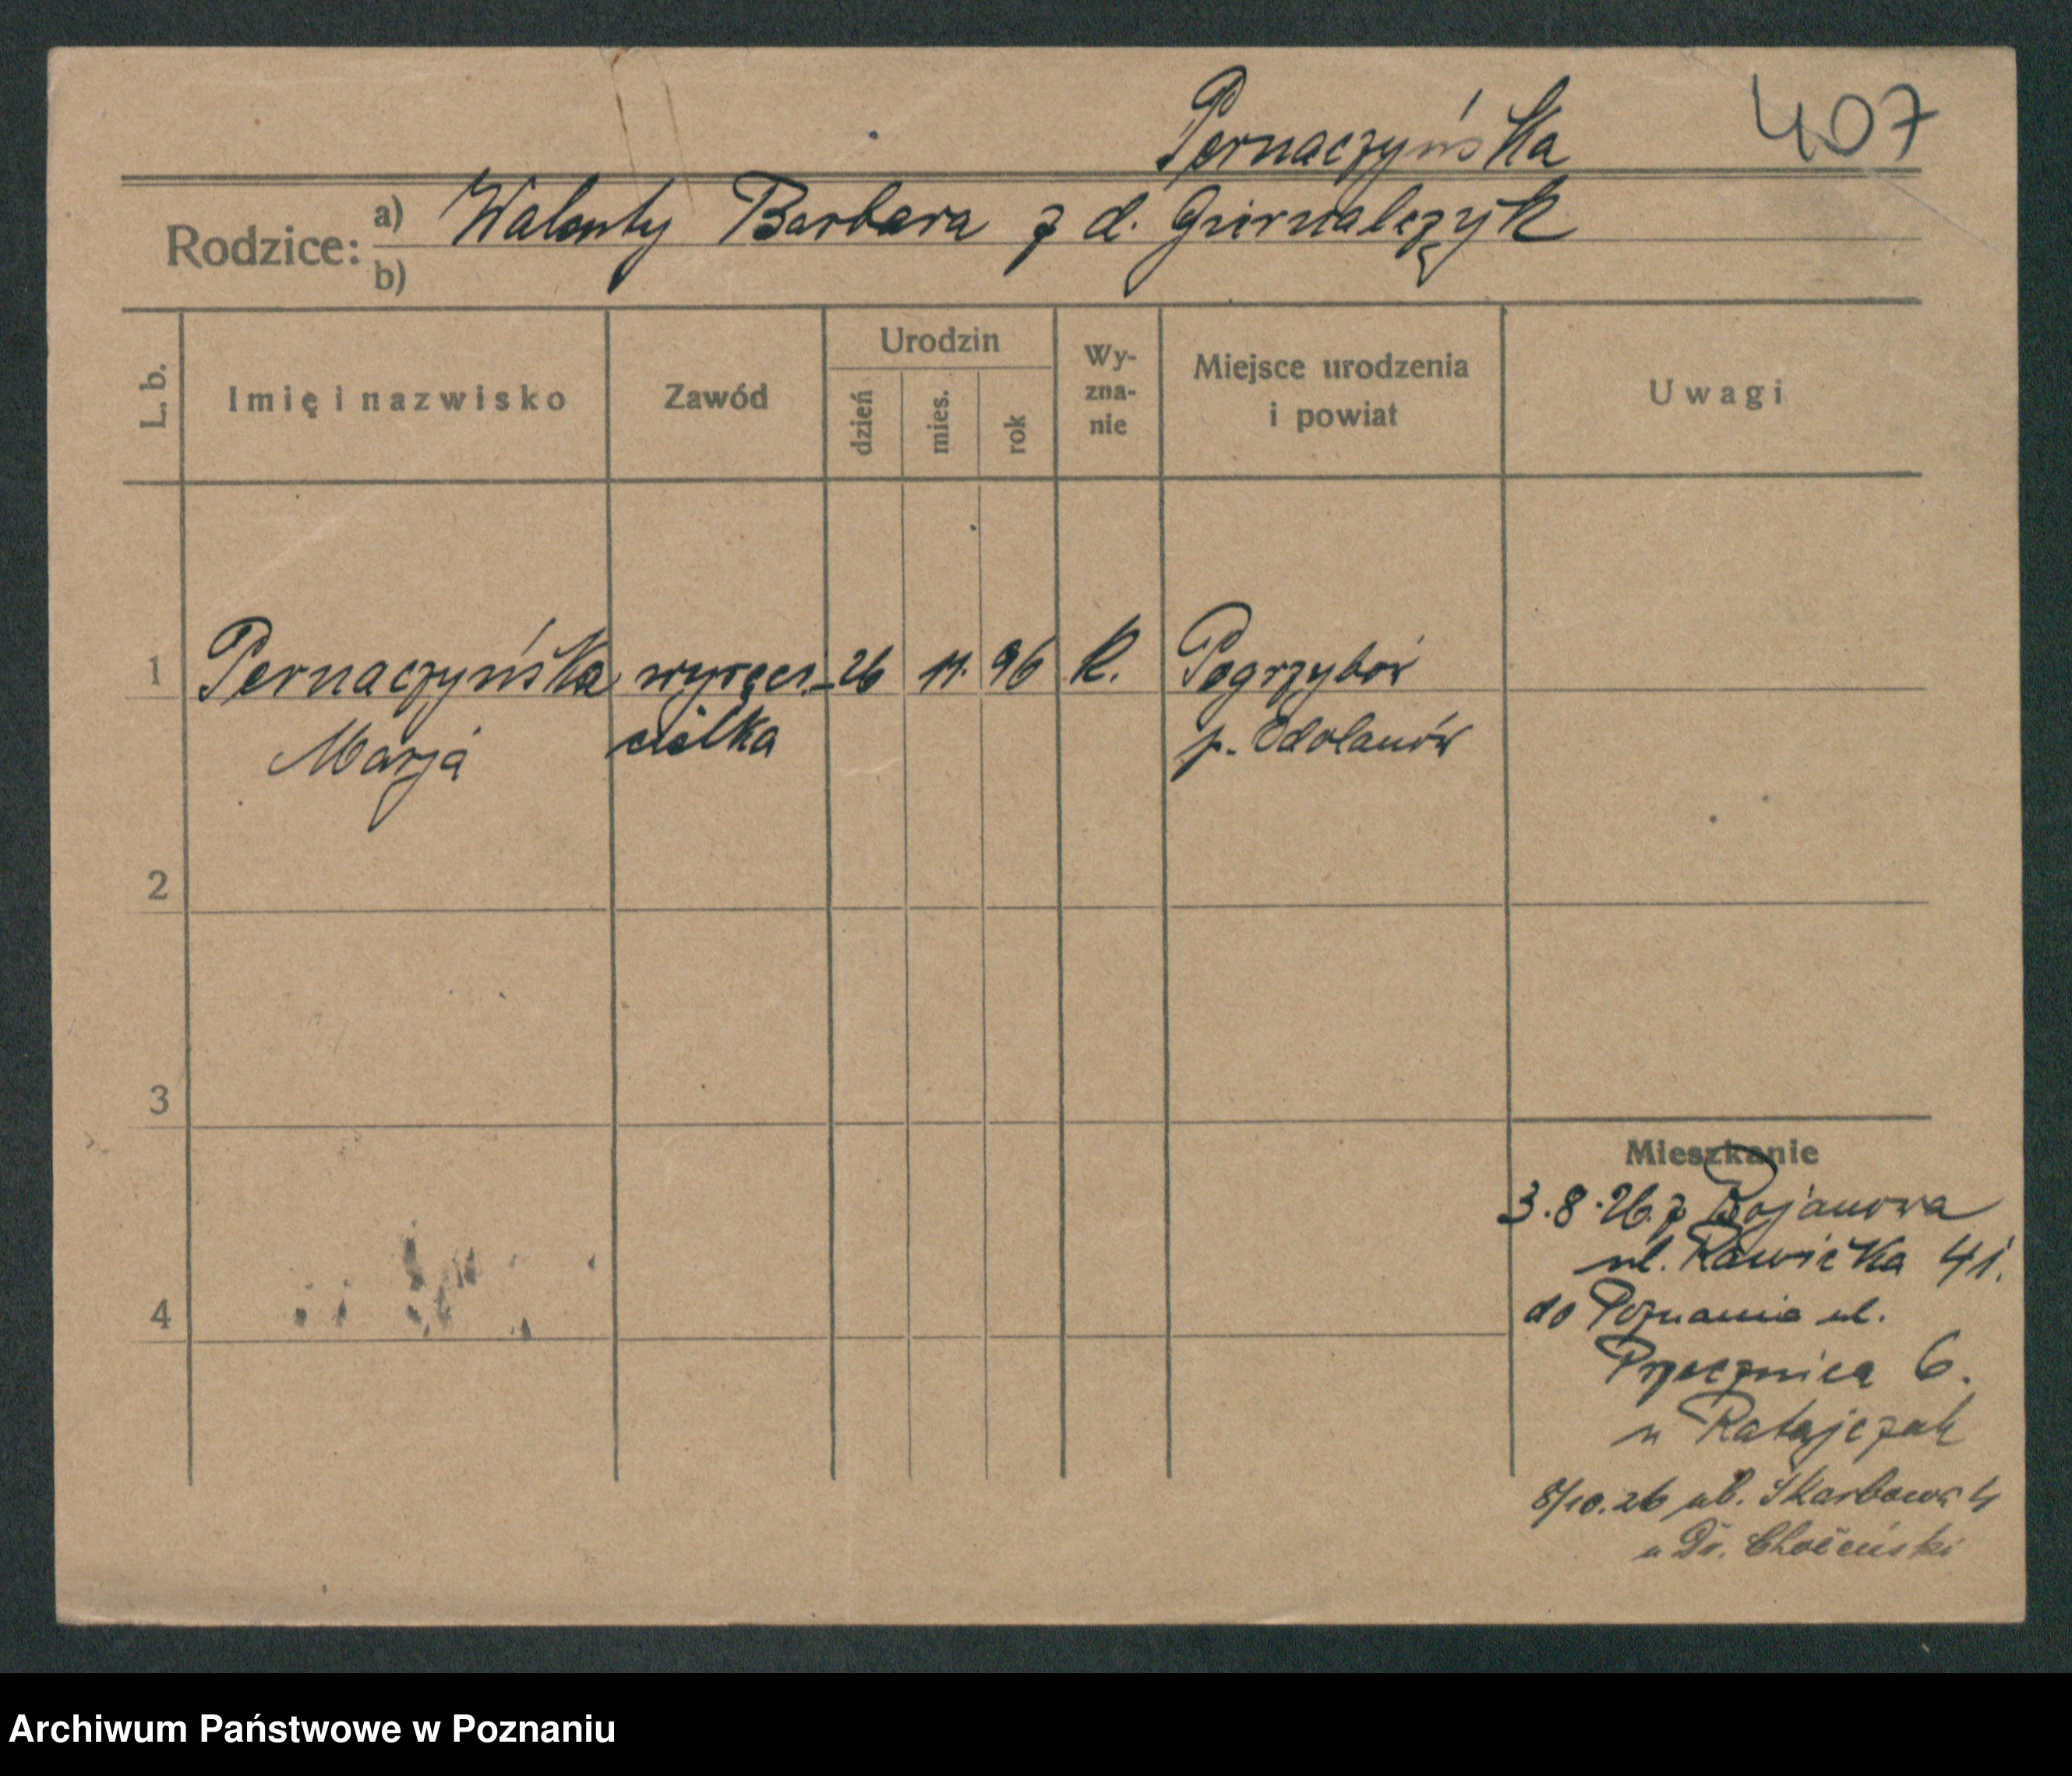 Pernaczyńska
407
Rodzice: a) Walenty Barbara z d.
b)
L. b.
Imię i nazwisko
Zawód
Urodzin
dzień
mies.
rok
Wy-
zna-
nie
Miejsce urodzenia
i powiat
Uwagi
1 Pernaczyńska wyręczi- 26 11. 96 K. Pogrzybów
Marja cielka p. Odolanów
2
3
Mieszkanie
3.8.26. z Bojanowa
ul. Rawicka 41.
4
do Poznania ul.
Przecznica 6.
u Ratajczak
8/10.26 ul. Skarbowa 4
u Dr.
Archiwum Państwowe w Poznaniu